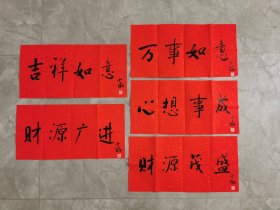 吉祥如意
财源广进
万事如意
心想事成
财源茂盛